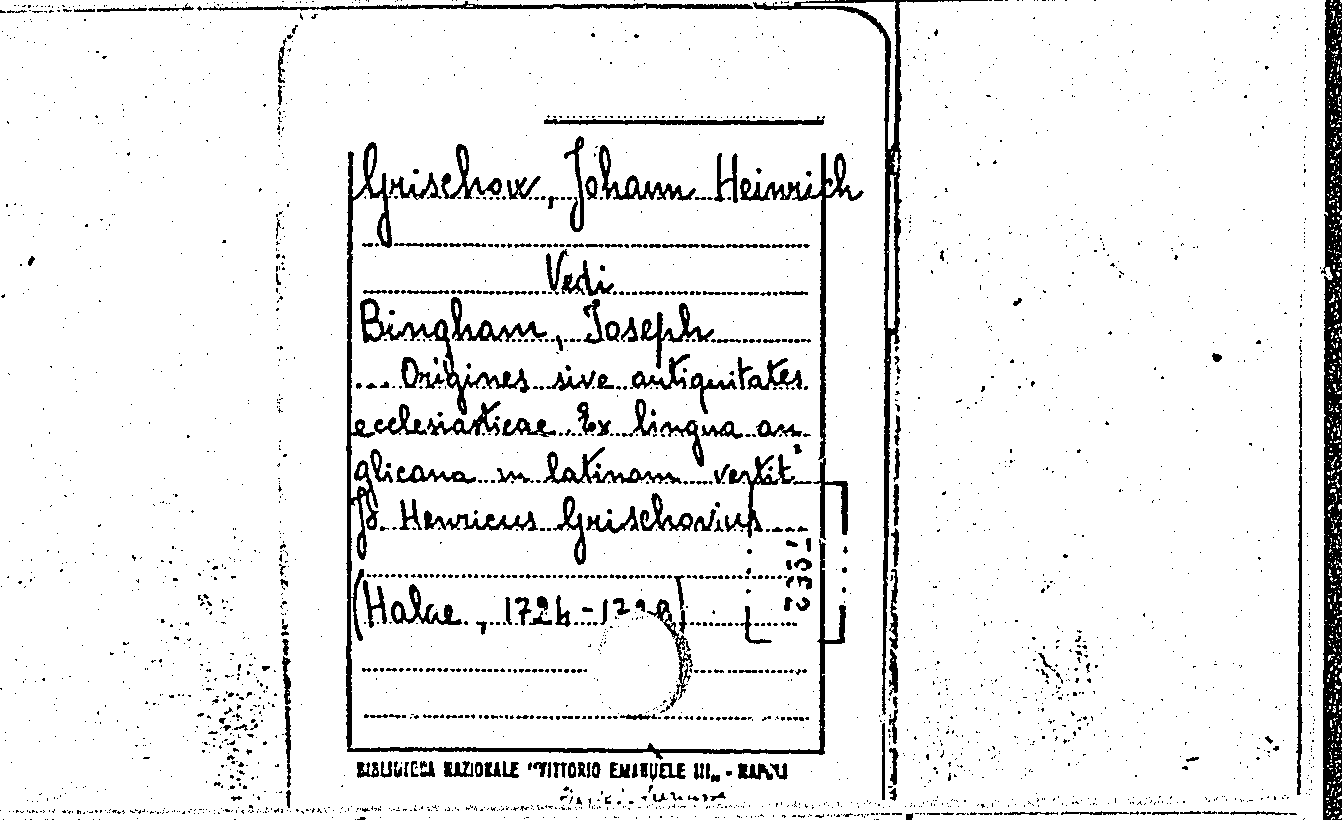 Grischow, Johann Heinrich
Vedi
Bingham, Joseph
... Origines sive antiquitates
ecclesiasticae. Ex lingua an
glicana in latinam vertit
Jo. Henricus Grischovius ...
(Halae, 1724-17
BIBLIOTECA NAZIONALE "VITTORIO EMANUELE III„ - NAPOLI